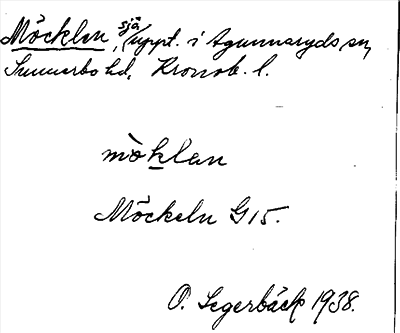 Möcklen, sjö, uppt. i Agunnaryds sn,
Sunnerbo hd, Kronob. l.
mòklan
Möckeln G 15.
O. Segerbäck 1938.